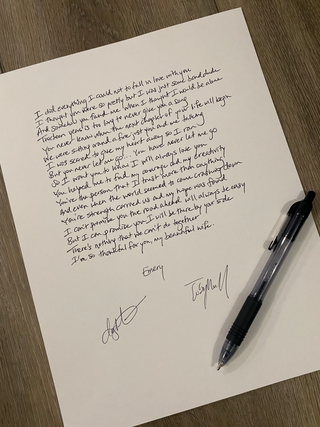 I did everything I could not to fall in love with you
I thought you were so pretty but I was just some band dude
And somehow you found me when I thought I would be alone
Fourteen years is too long to never give you a song
You never know when the next chapter of your life will begin
We were sitting around a fire just you and me talking
I was scared to give my heart away so I ran
But you never let me go. You have never let me go
So I want you to know I will always love you
You helped me to find my courage and my creativity
You're the person that I trust more than anything
And even when the world seemed to come crashing down
You're strength carried us and my hope was found
I can't promise you the road ahead will always be easy
But I can promise you I will be there by your side
There's nothing that we can't do together
I'm so thankful for you, my beautiful wife.
Emery